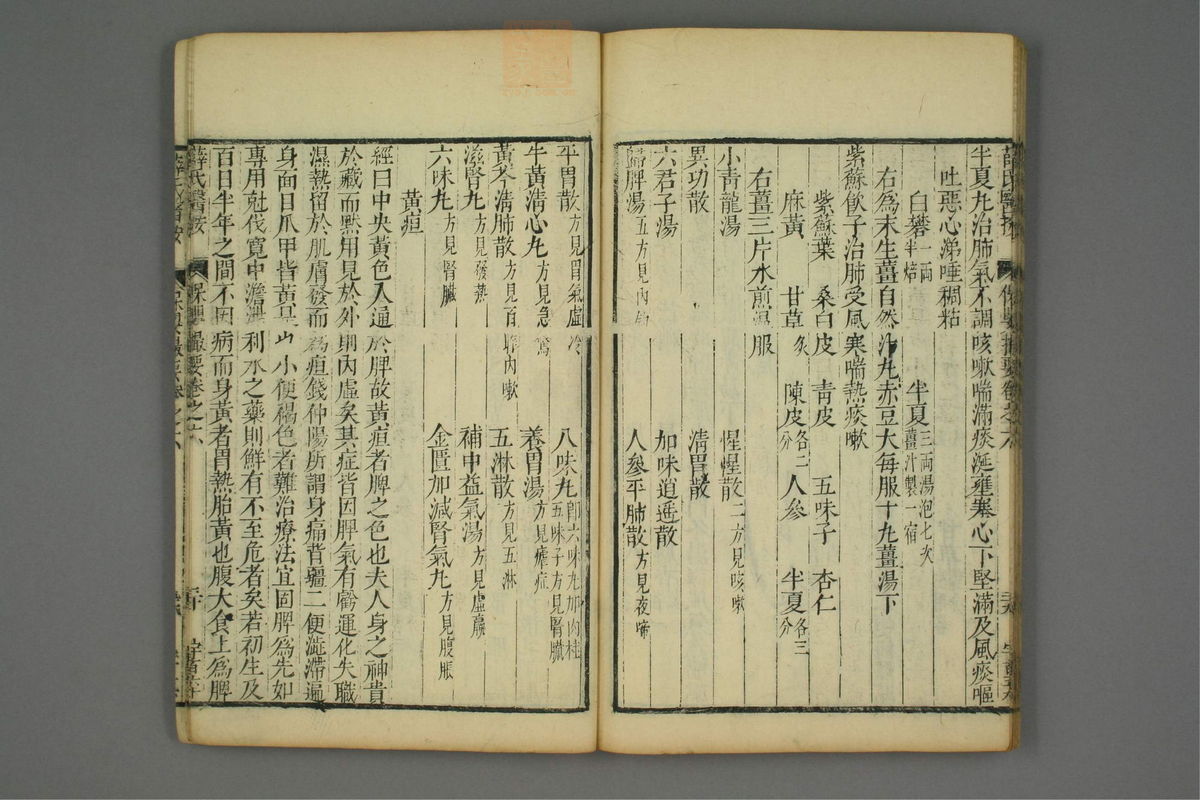 半夏丸治肺氣不調咳嗽喘滿痰涎壅塞心下堅滿及風痰嘔
吐惡心涕唾稠粘
白礬一兩半焙 半夏三兩湯泡七次薑汁製一宿
右為末生薑自然汁丸赤豆大每服十丸薑湯下
紫蘇飲子治肺受風寒喘熱痰嗽
紫蘇葉 桑白皮 靑皮 五味子 杏仁
麻黃 甘草炙 陳皮各二分 人參 半夏各三分
右薑三片水煎溫服
小靑龍湯 惺惺散二方見咳嗽
異功散 淸胃散
六君子湯 加味逍遙散
歸脾湯五方見內釣 人參平肺散方見夜啼
平胃散方見胃氣虛冷 八味丸卽六味丸加肉桂五味子方見腎臟
牛黃淸心丸方見急驚 養胃湯方見瘧症
黃芩淸肺散方見百晬內嗽 五淋散方見五淋
滋腎丸方見發熱 補中益氣湯方見虛羸
六味丸方見腎臟 金匱加減腎氣丸方見腹脹
黃疸
經曰中央黃色入通於脾故黃疸者脾之色也夫人身之神貴
於藏而默用見於外則內虛矣其症皆因脾氣有虧運化失職
濕熱留於肌膚發而為疸錢仲陽所謂身痛背彊二便澁滯遍
身面目爪甲皆黃是也小便褐色者難治療法宜固脾爲先如
專用尅伐寬中淡滲利水之藥則鮮有不至危者矣若初生及
百日半年之間不因病而身黃者胃熱胎黃也腹大食土爲脾
薛氏醫按 保嬰撮要卷之六 三十